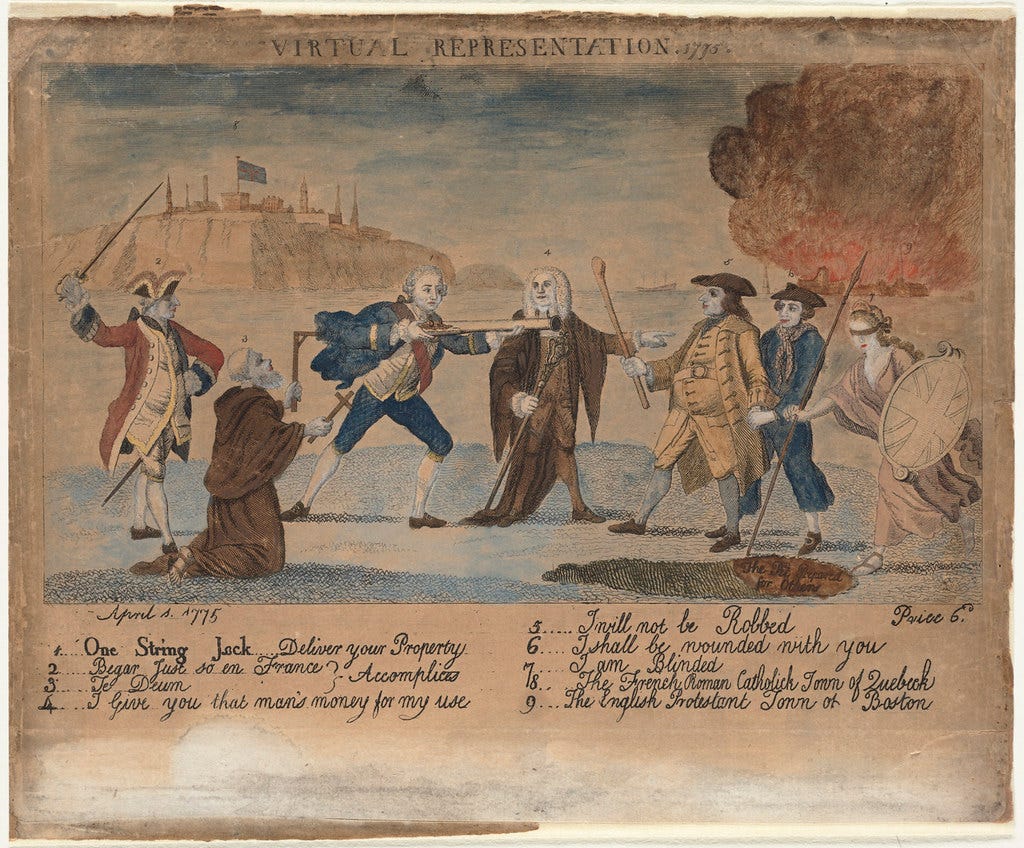 VIRTUAL REPRESENTATION. 1775.
8
9
2
1
4
5
6
7
3
The Pit Prepared
for Others
April 1. 1775
Price 6.d
1....One String Jack....Deliver your Property
2......Begar Just so en France } Accomplices
3......Te Deum
4......I Give you that man's money for my use
5.....I will not be Robbed
6.....I shall be wounded with you
7.....I am Blinded
8....The French Roman Catholick Town of Quebeck
9....The English Protestant Town of Boston